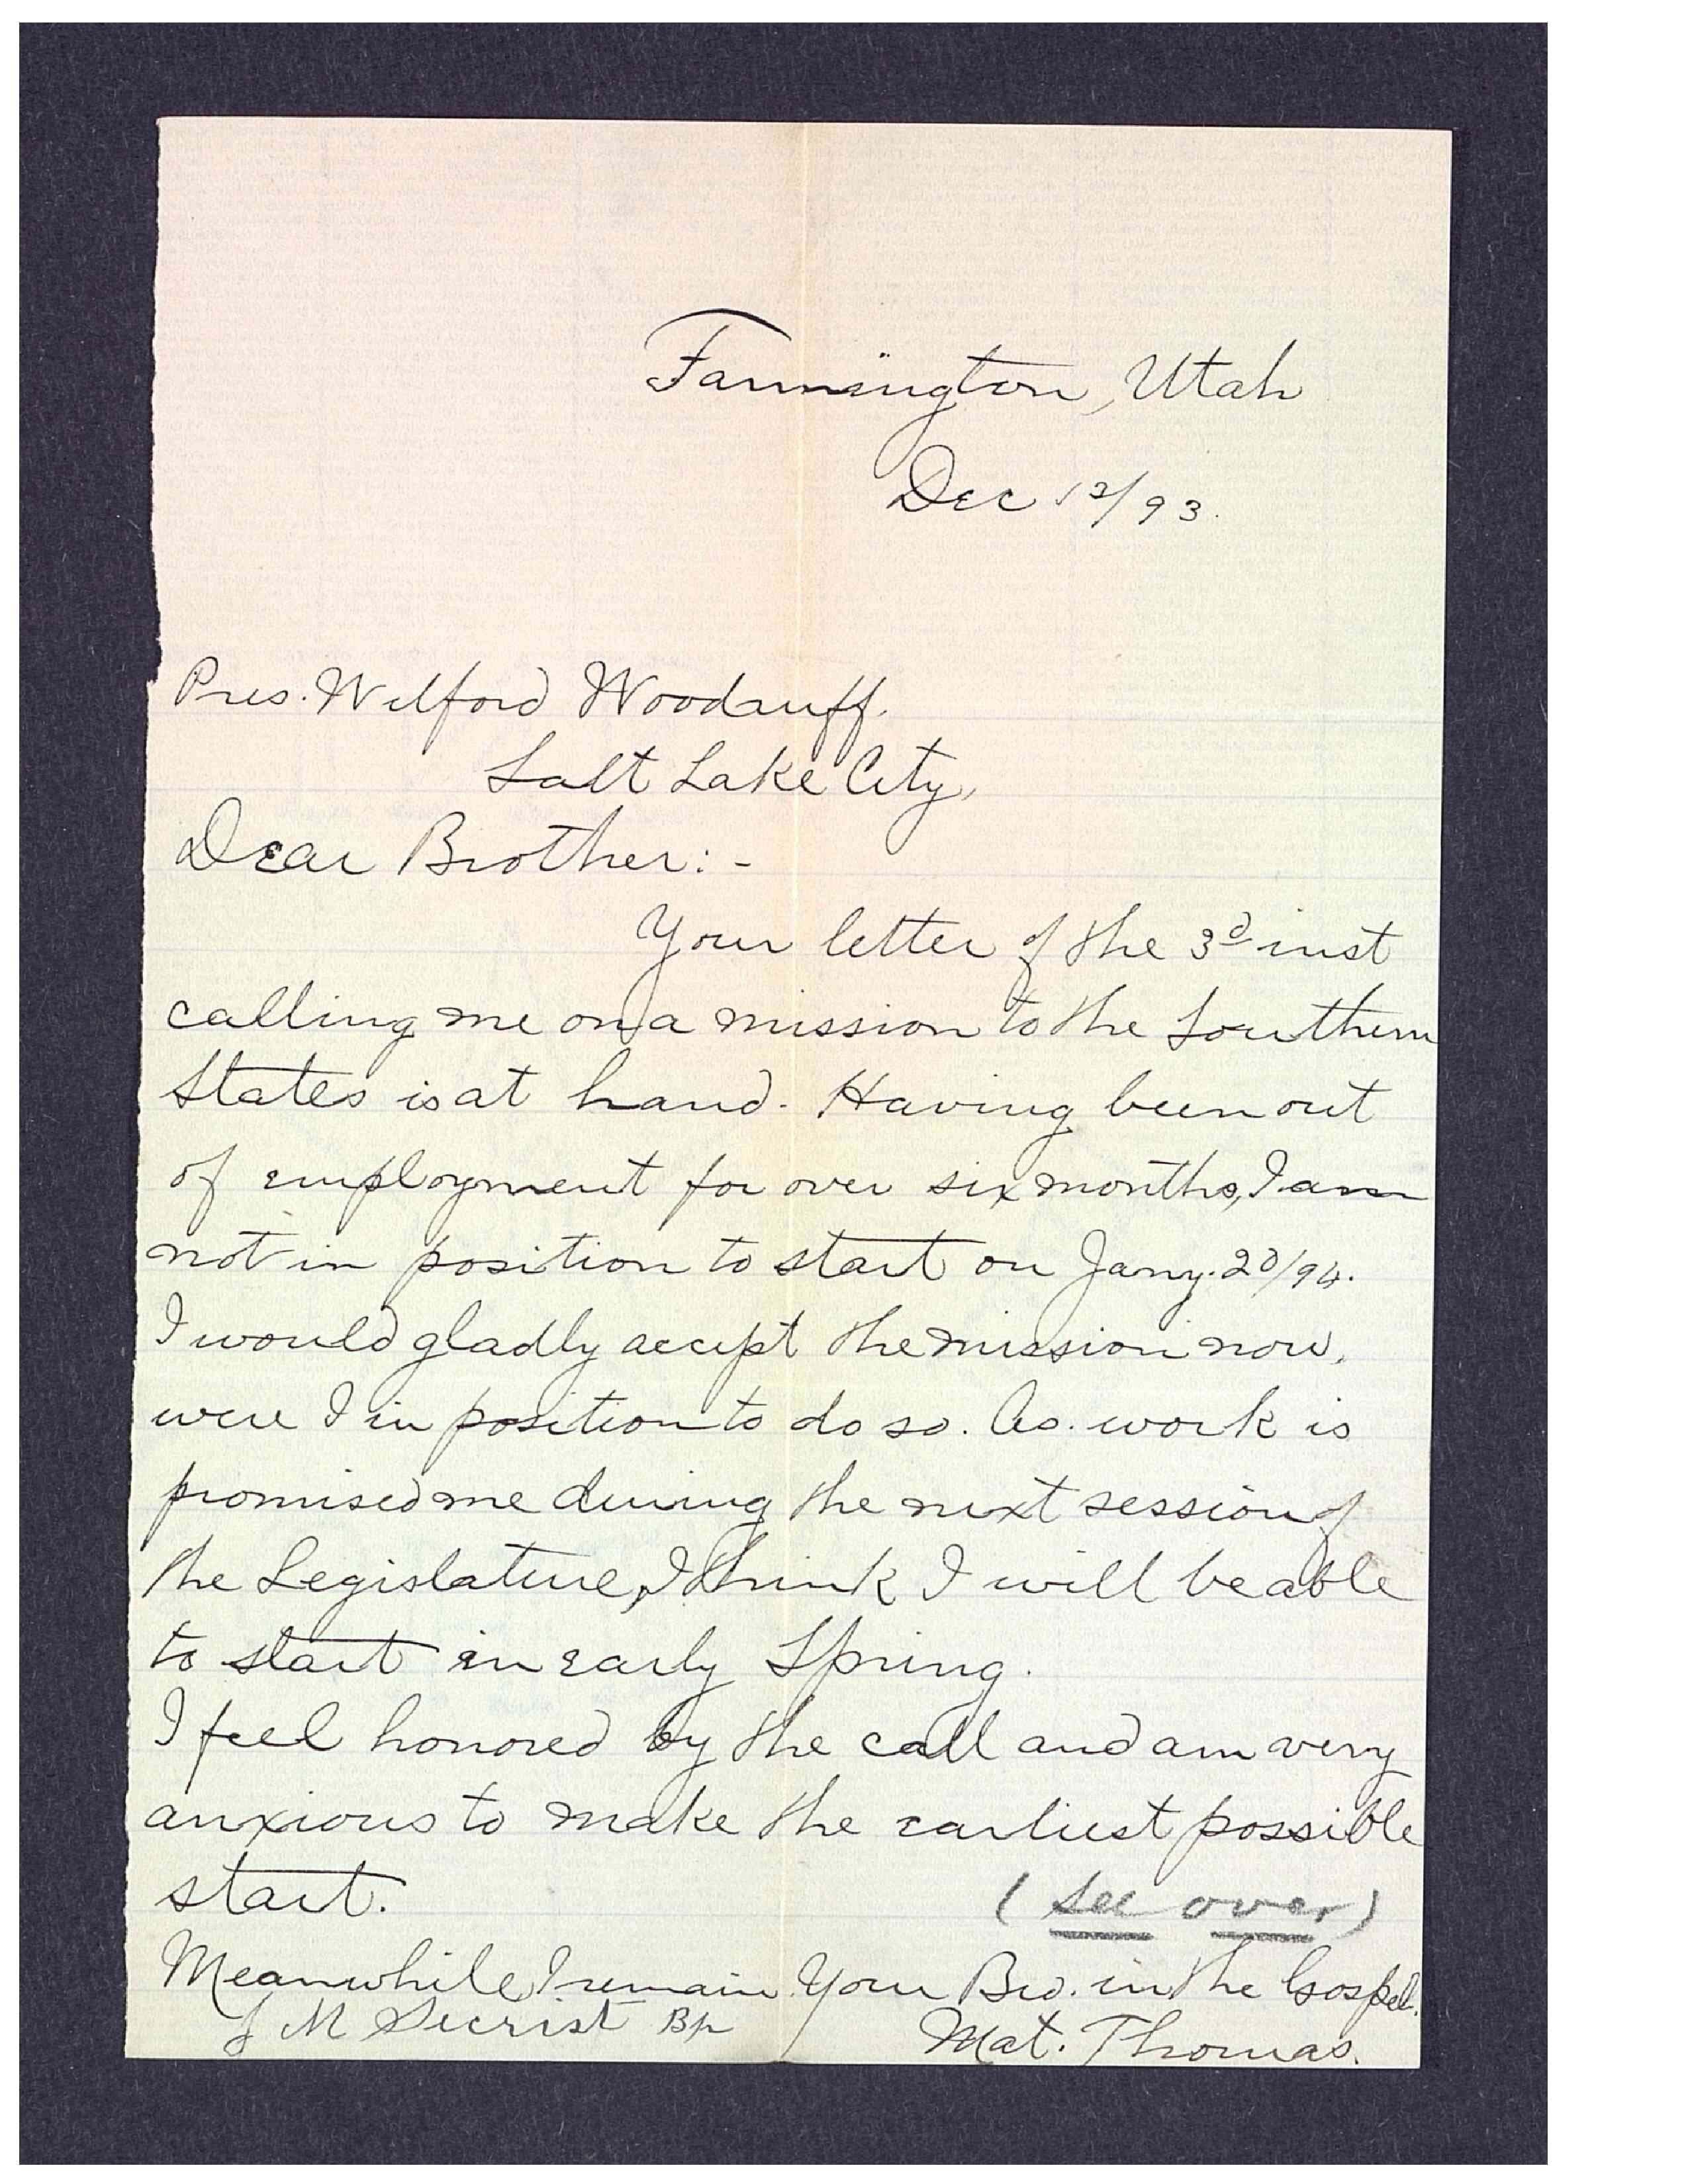 Farmington, Utah
Dec 12/93.
Pres. Wilford Woodruff.
Salt Lake City,
Dear Brother:-
Your letter of the 3d inst
calling me on a mission to the Southern
States is at hand. Having been out
of employment for over six months, I am
not in position to start on Jany. 20/94.
I would gladly accept the mission now,
were I in position to do so. As work is
promised me during the next session of
the Legislature, I think I will be able
to start in early Spring.
I feel honored by the call and am very
anxious to make the earliest possible
start.
(see over)
Meanwhile I remain Your Bro. in the Gospel.
J M Secrist Bp
Mat. Thomas.